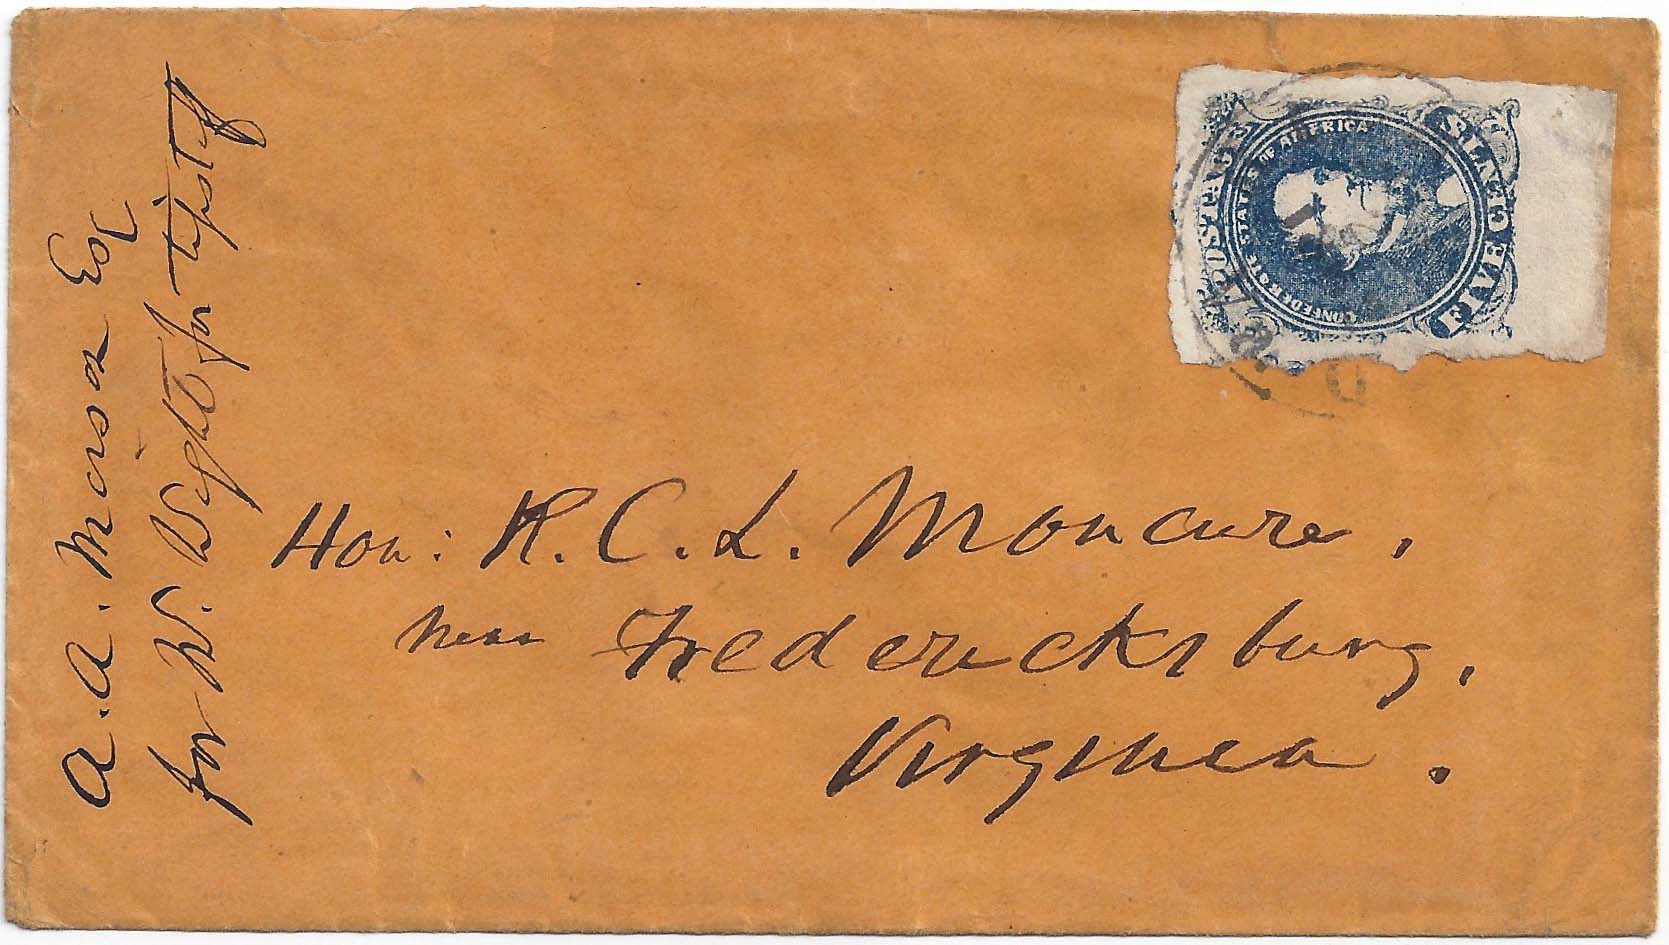 A. A. Morson Esq
for W. Wight for tipstaff
POSTAGE
CONFEDERATE STATES OF AMERICA
FIVE CENTS
Hon: R. C. L. Moncure,
near Fredericksburg,
Virginia.